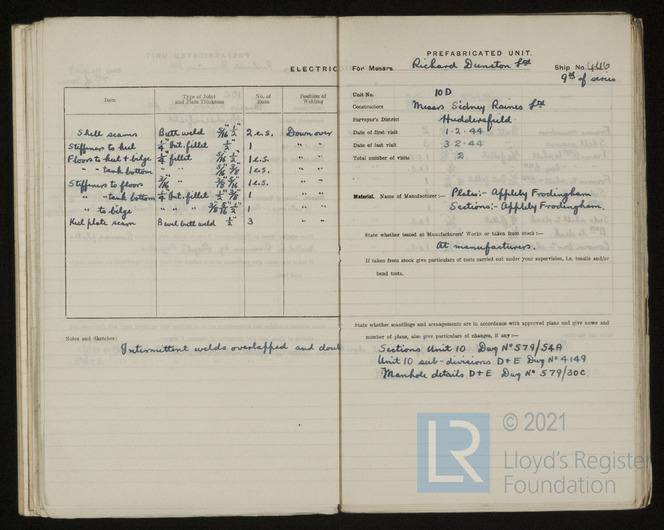 ELECTRIC
Item
Type of Joint and Plate Thickness
No. of Runs
Position of Welding
Shell seams Butt weld 5/16" 1/2" 2 e.s. Down over
Stiffeners to keel 1/4 Int. fillet 1/2" 1 " "
Floors to keel + bilge 1/4 fillet 1 e.s. " "
" " tank bottom " " 1 e.s. " "
Stiffeners to floors 1 e.s. " "
" " tank bottom 1/4 Int. fillet 1 " "
" to bilge " " " 1 " "
Keel plate seam Bevel butt weld 1/2" 3 " "
Notes and Sketches:
Intermittent welds overlapped and doub
PREFABRICATED UNIT.
For Messrs. Richard Dunston Ltd Ship No. 446
9th of series
Unit No. 10 D
Constructors Messrs Sidney Raines Ltd
Surveyor's District Huddersfield
Date of first visit 1·2·44
Date of last visit 3·2·44
Total number of visits 2
Material. Name of Manufacturer :— Plates:- Appleby Frodingham
Sections:- Appleby Frodingham.
State whether tested at Manufacturers' Works or taken from stock :—
At manufacturers.
If taken from stock give particulars of tests carried out under your supervision, i.e. tensile and/or
bend tests.
State whether scantlings and arrangements are in accordance with approved plans and give names and
number of plans, also give particulars of changes, if any :—
Sections Unit 10 Dwg No 579/54A
Unit 10 sub-divisions D + E Dwg No 4149
Manhole details D + E Dwg No 579/30C
LR
© 2021
Lloyd's Register
Foundation